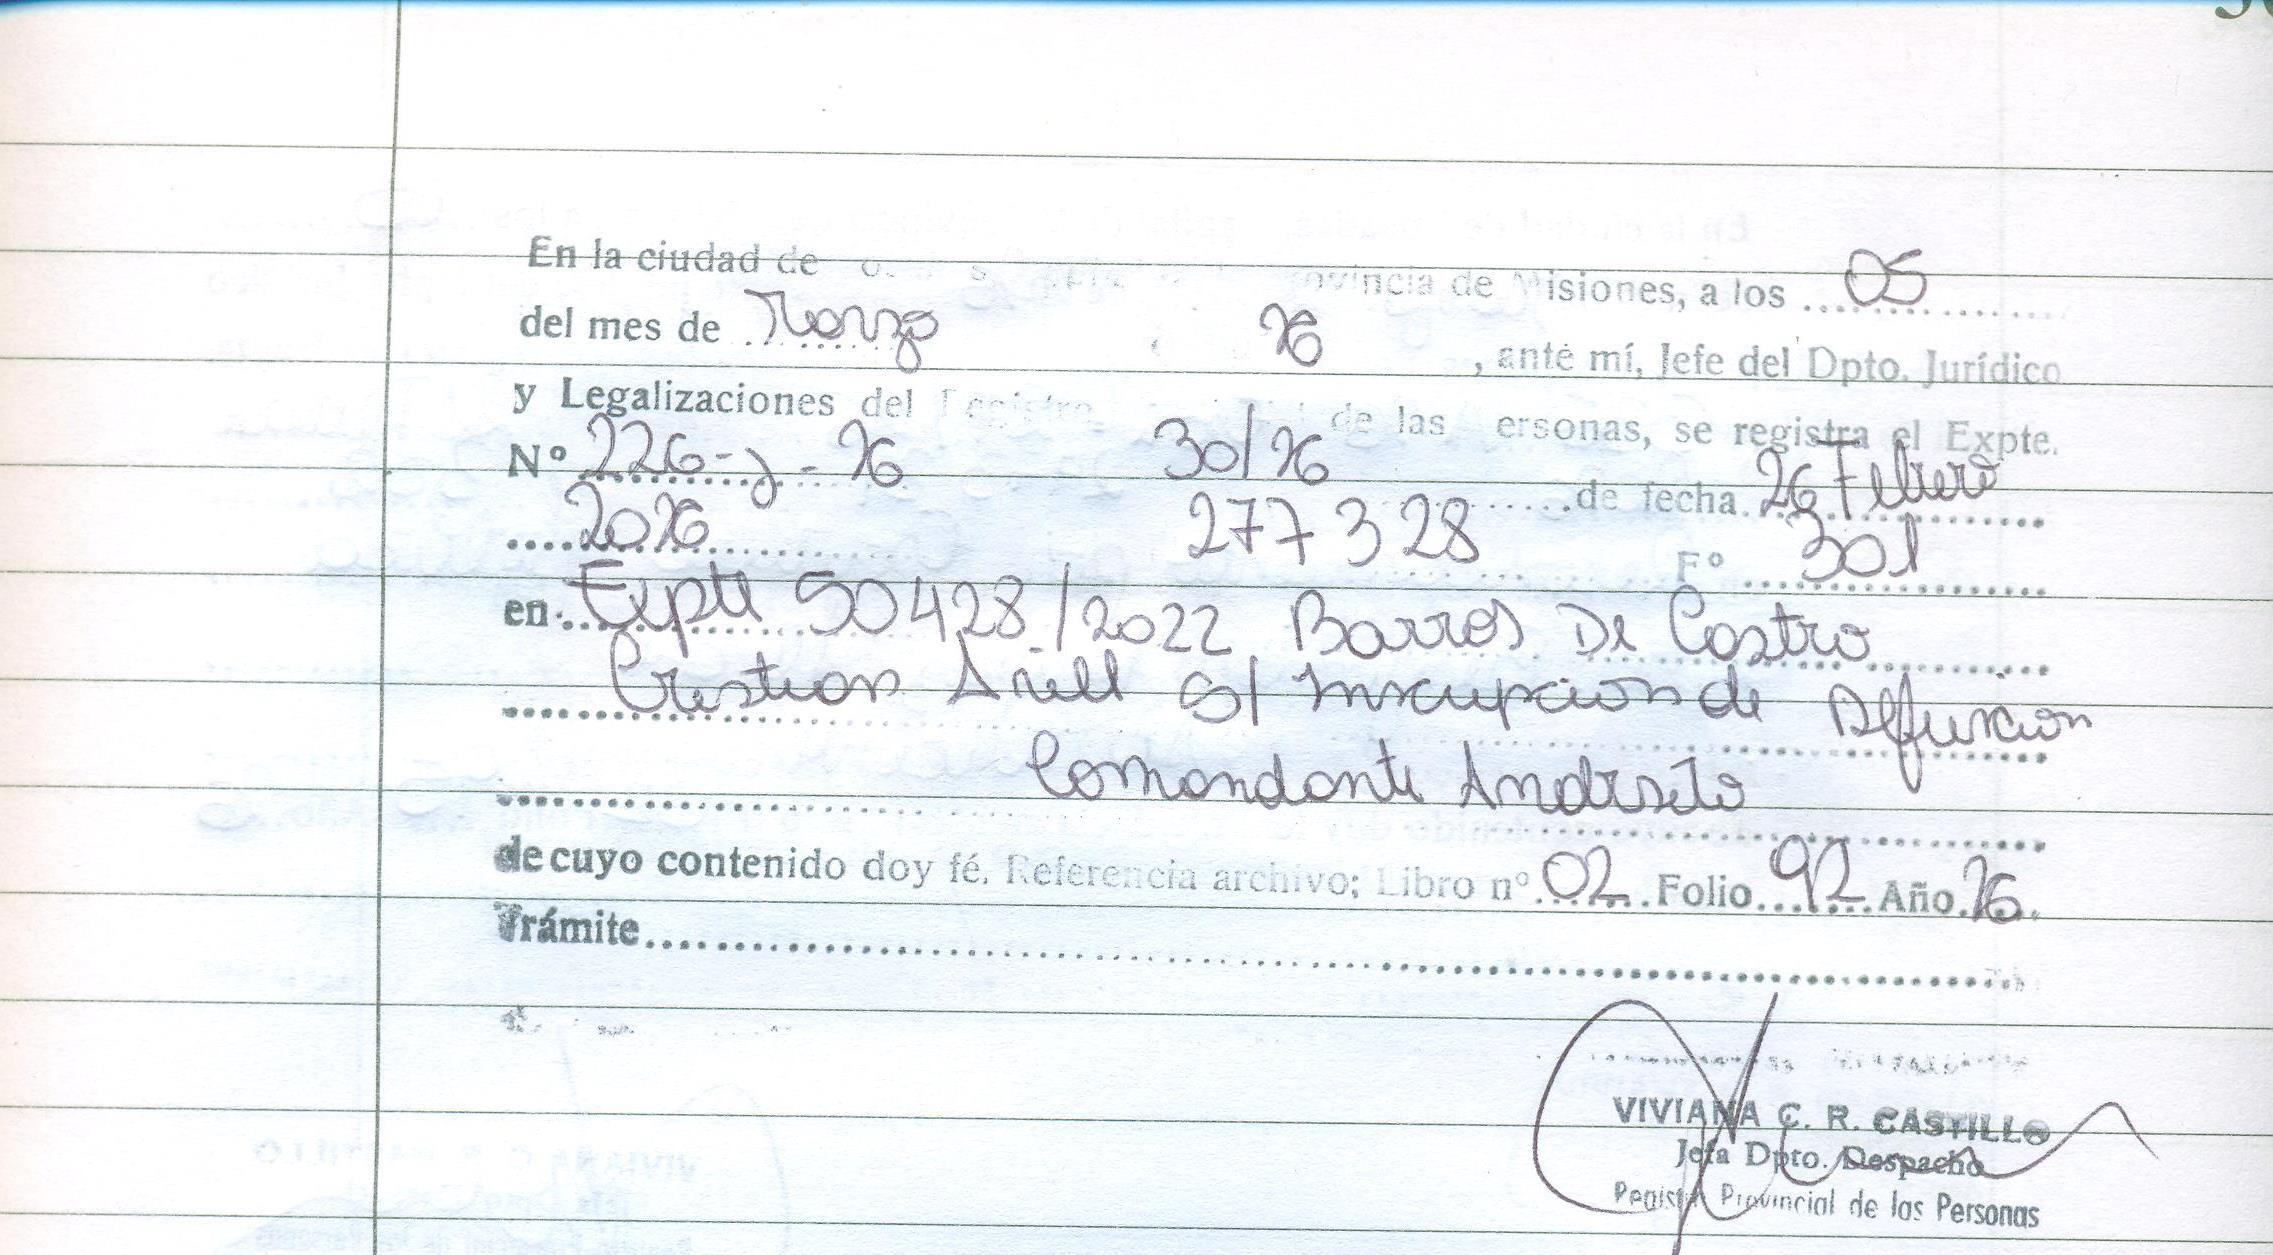 En la ciudad de provincia de Misiones, a los 05
del mes de Marzo 26, ante mí, Jefe del Dpto. Jurídico
y Legalizaciones del Registro de las Personas, se registra el Expte.
Nº 226-J-26 30/26 de fecha 26 Febrero
2026 277328 Fº 301
en Expte 50428/2022 Barros De Castro
Cristian Ariel S/ Inscripcion de Defuncion
Comandante Andresito
de cuyo contenido doy fé. Referencia archivo; Libro nº 02 Folio 92 Año 26
Trámite
VIVIANA C. R. CASTILLO
Jefa Dpto. Despacho
Registro Provincial de las Personas